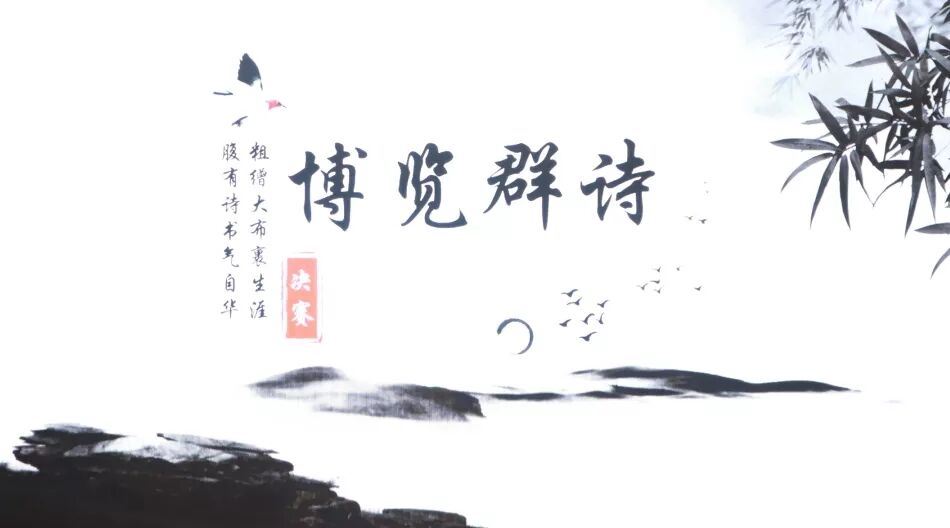 博览群诗
粗缯大布裹生涯
腹有诗书气自华
决赛